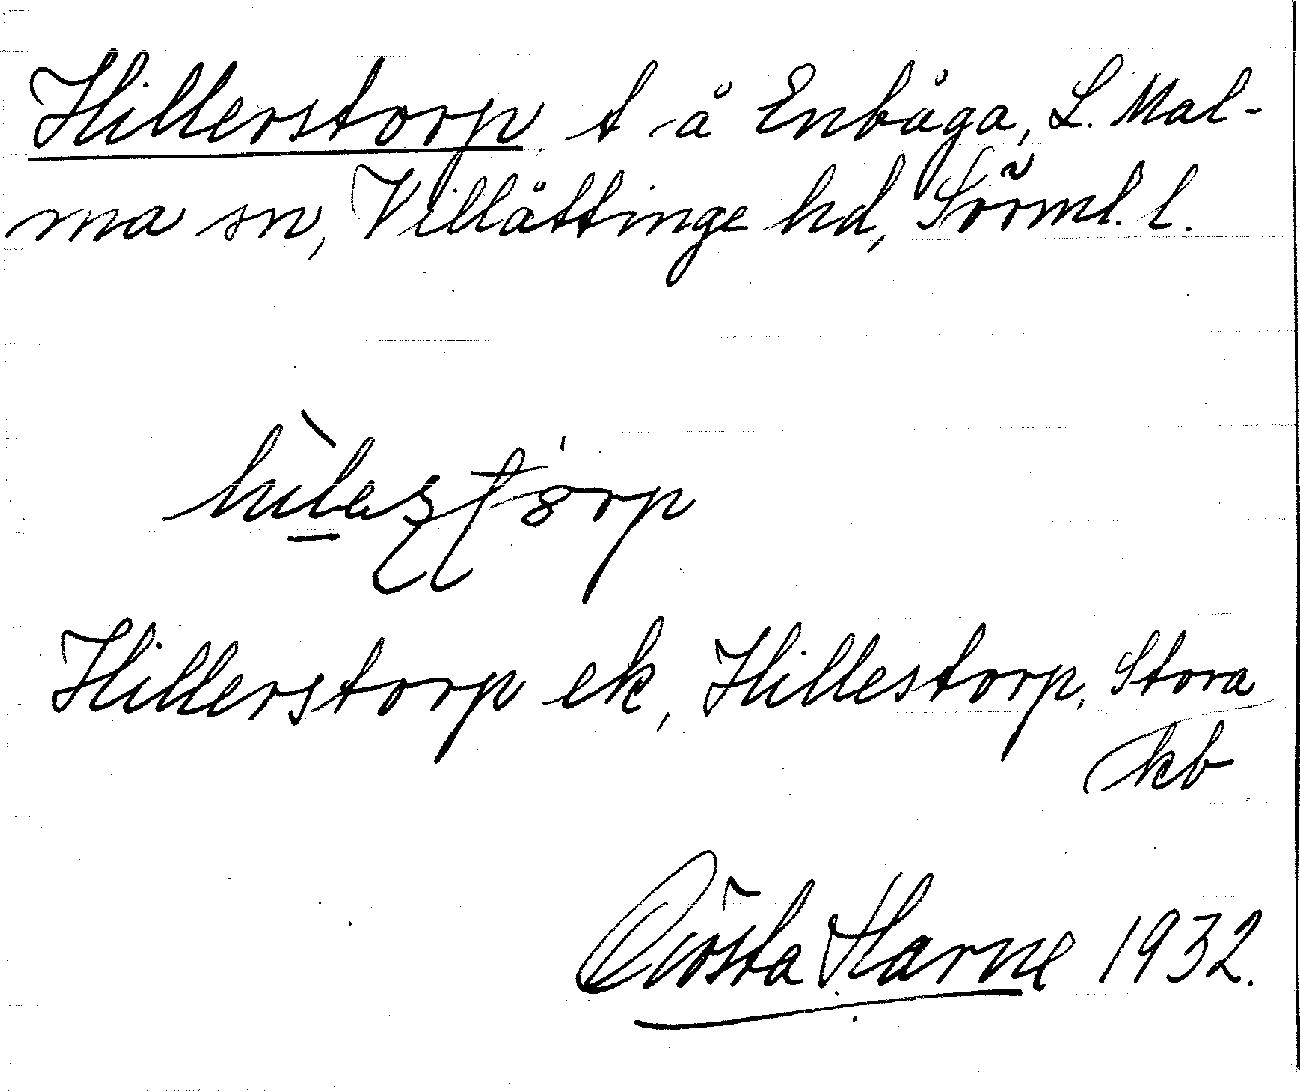 Hillerstorp t å Enbåga, L. Mal-
ma sn, Villåttinge hd, Sörml. l.
Hillerstorp ek, Hillestorp, Stora
kb
Gösta Harne 1932.